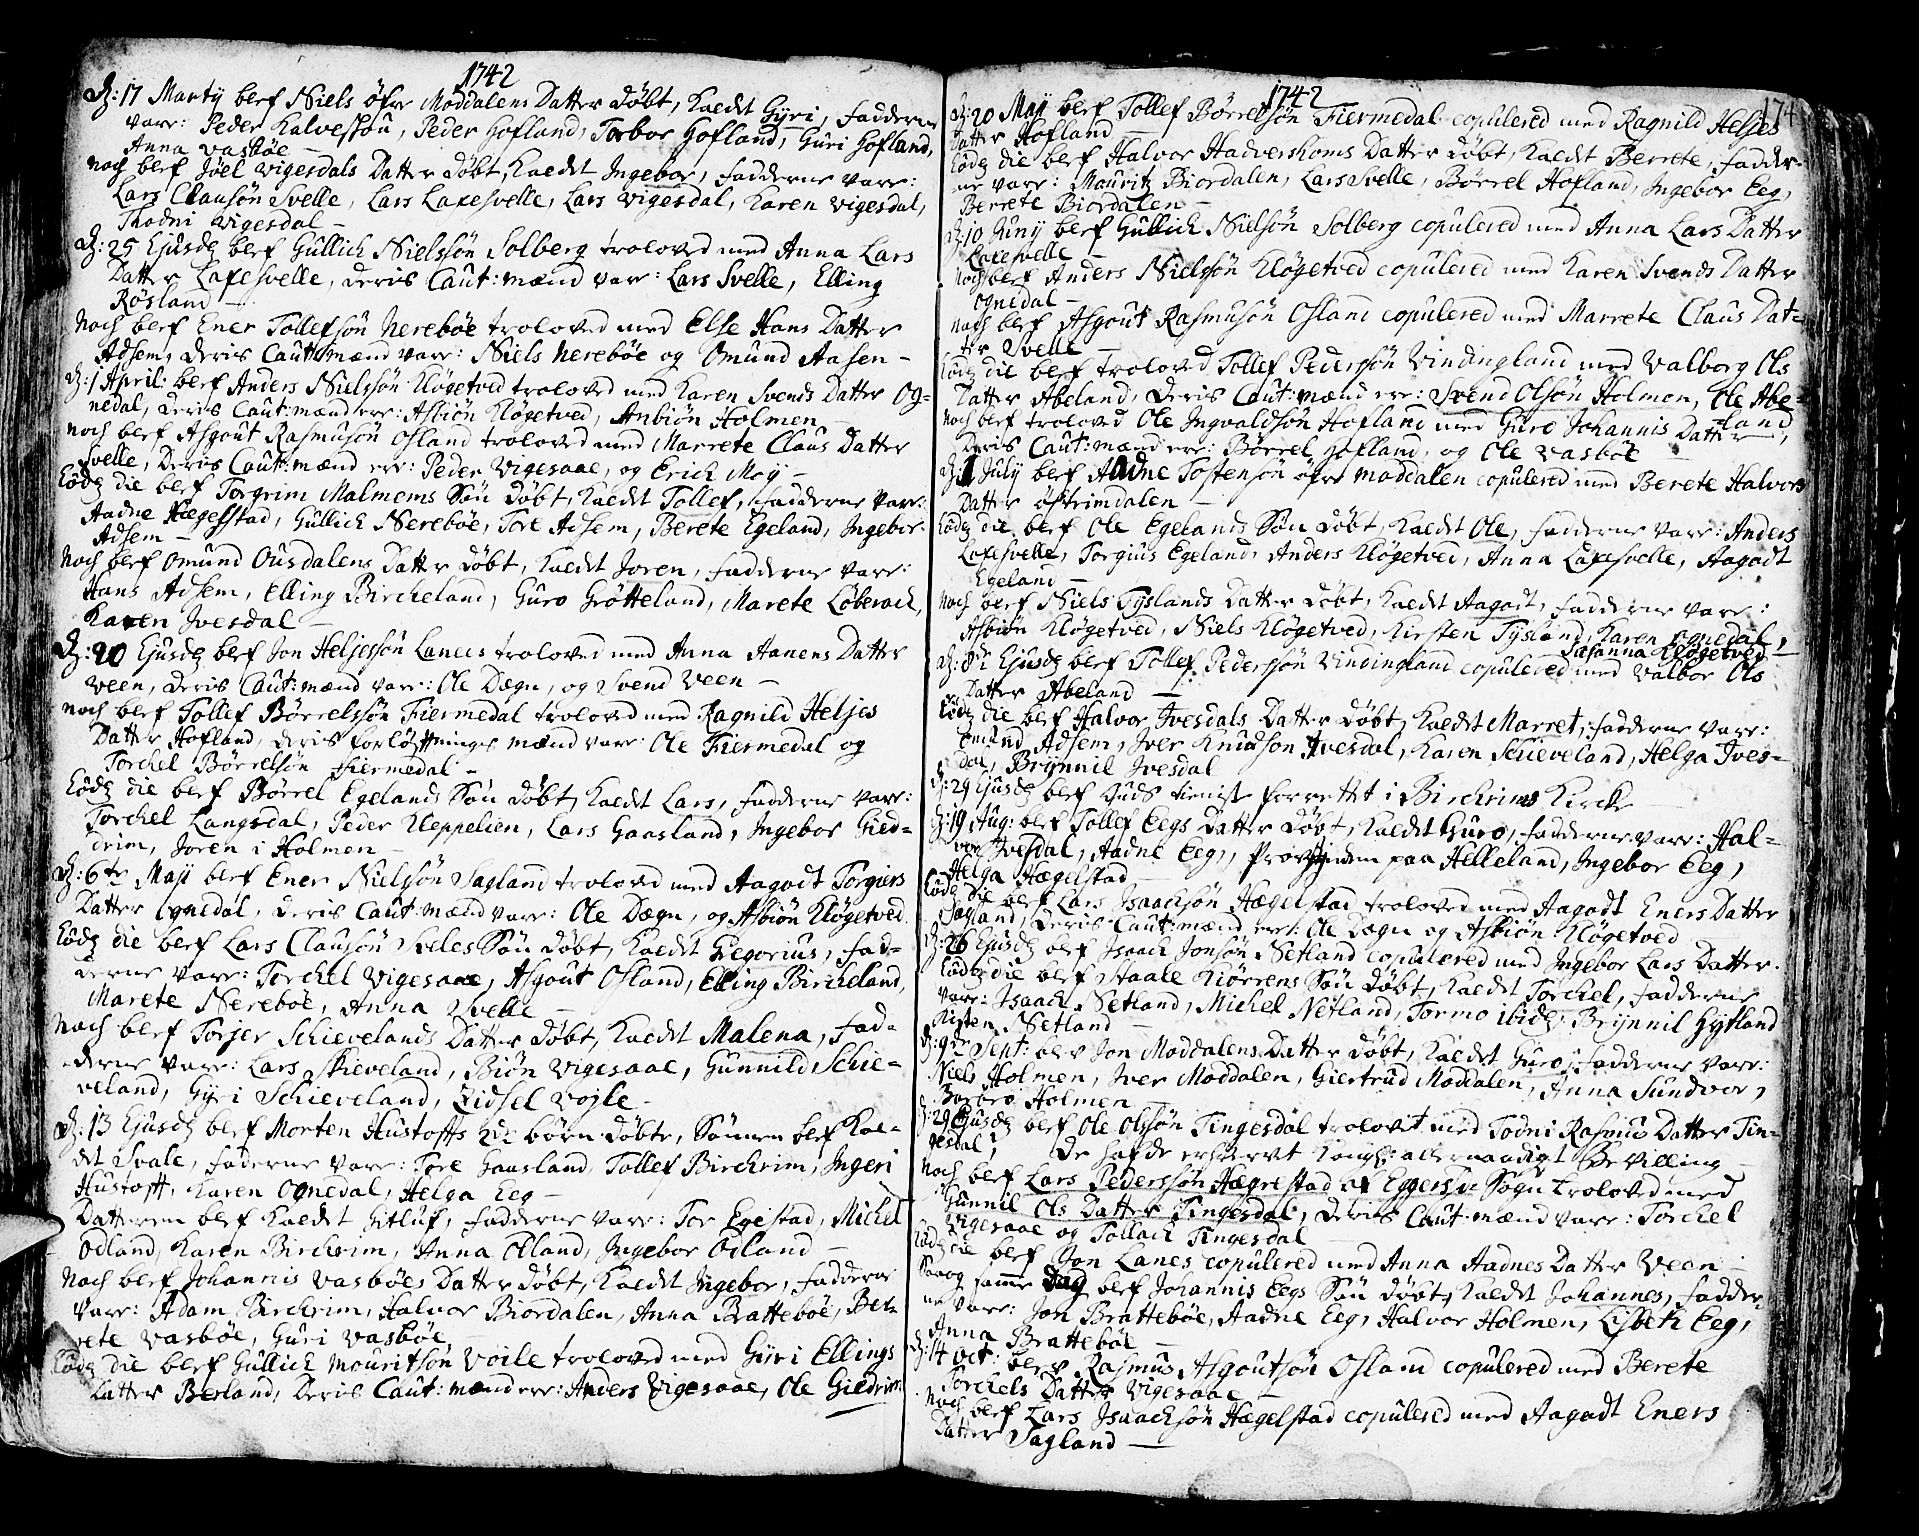 1742
D: 17 Martij blef Niels öfre Moddalens Datter döbt, kaldt Gyri, Fadderne
vare: Peder Kalvessön, Peder Hofland, Torbor Hofland, Guri Hofland,
Anna Vasböe —
Noch blef Jöel Vigesdals Datter döbt, kaldt Ingebor, Fadderne vare:
Lars Clausön Svelle, Lars Laxesvelle, Lars Vigesdal, Karen Vigesdal,
Thodni Vigesdal —
D: 25 Ejusd blef Gullich Nielssön Solberg troloved med Anna Lars
Datter Laxesvelle, deris Caut: mænd var: Lars Svelle, Elling
Rösland —
Noch blef Ener Tollefsön Nereböe troloved med Else Hans Datter
Adsem, deris Caut: mænd vare: Niels Nereböe og Omund Aasen —
D: 1 April: blef Anders Nielssön Klögetved troloved med Karen Svends Datter Og=
nedal, deris Caut: mænd ere: Asbiön Klögetved, Anbiön Holmen —
Noch blef Asgout Rasmusön Osland troloved med Marrete Claus Datter
Svelle, deris Caut: mænd ere: Peder Vigesaae, og Erich Moy —
Eodem die blef Torgrim Malmems Sön döbt, kaldt Tollef, Fadderne vare:
Aadne Hægelstad, Gullich Nereböe, Tore Adsem, Berete Egeland, Ingebor
Adsem —
Noch blef Omund Ousdalens Datter döbt, kaldt Joren, Fadderne vare:
Hans Adsem, Elling Bircheland, Guro Grötteland, Marete Löbrock,
Karen Ivesdal —
D: 20 Ejusd blef Jon Heljessön Lanees troloved med Anna Aanens Datter
Veen, deris Caut: mænd vare: Ole Dægn, og Svend Veen —
Noch blef Tollef Börrelssön Fiermedal troloved med Ragnild Heljes
Datter Hofland, deris forlöftninges mænd vare: Ole Fiermedal og
Torchel Börrelsön Fiermedal —
Eodem die blef Börrel Egelands Sön döbt, kaldt Lars, Fadderne vare:
Torchel Langsdal, Peder Kleppelien, Lars Gaasland, Ingebor Gied=
drim, Joren i Holmen —
D: 6te Maji blef Ener Nielssön Sagland troloved med Aagadt Torgiers
Datter Ognedal, deris Caut: mænd vare: Ole Dægn, og Asbiön Klögetved
Eodem die blef Lars Clausön Sveles Sön döbt, kaldt Gregorius, Fad=
derne vare: Torchel Vigesaae, Asgout Osland, Elling Bircheland,
Marete Nereböe, Anna Svelle —
Noch blef Torjer Schievelands Datter döbt, kaldt Malena, Fad=
derne vare: Lars Skieveland, Biön Vigesaae, Gunnild Schie=
veland, Gyri Schieveland, Zidsel Vojle —
D: 13 Ejusd blef Morten Hustoffts 2de börn döbte, Sönnen blef kal=
dt Svale, Faderne vare: Tore Gaasland, Tollef Birchrim, Ingeri
Hustoft, Karen Ognedal, Helga Eeg —
Datteren blef kaldt Gitluf, Fadderne vare: Tor Egestad, Michel
Ödland, Karen Birchrim, Anna Ödland, Ingebor Ödland —
Noch blef Johannis Vasböes Datter döbt, kaldt Ingebor, Fadderne
vare: Adam Birchrim, Halvor Biordalen, Anna Bratteböe, Ber=
rete Vasböe, Guri Vasböe
Eodem die blef Gullich Mouritsön Voile troloved med Gyri Ellings
Datter Berland, deris Caut: mænd ere: Anders Vigesaae, Ole Giedrim.
1742
174
D: 20 Maji blef Tollef Börrelsön Fiermedal copulered med Ragnild Heljes
Datter Hofland —
Eodem die blef Halvor Hadvershoms Datter döbt, kaldt Berrete, Fadder=
ne vare: Mauritz Biordalen, Lars Svelle, Börrel Hofland, Ingebor Eeg,
Berrete Biordalen —
D: 10 Juny blef Gullich Nielsön Solberg copulered med Anna Lars Datter
Laxesvelle —
Noch blef Anders Nielssön Klögetved copulered med Karen Svends Datter
Ognedal —
Noch blef Asgout Rasmusön Osland copulered med Marrete Claus Dat=
ter Svelle —
Eodem die blef troloved Tollef Pederssön Vindingland med Valborg Ols
Datter Abeland, deris Caut: mænd ere: Svend Olsön Holmen, Ole Abe=
land,
Noch blef troloved Ole Ingvaldsön Hofland med Guro Johannis Datter —
deris Caut: mænd ere: Börrel Hofland, og Ole Vasböe —
D: 1 July blef Aadne Tostensön öfre Moddalen copulered med Berete Halvors
Datter Östrimdalen —
Eodem die blef Ole Egelands Sön döbt, kaldt Ole, Fadderne vare: Anders
Laxesvelle, Torgius Egeland, Anders Klögetved, Anna Laxesvelle, Aagadt
Egeland —
Noch blef Niels Tyslands Datter döbt, kaldt Aagadt, Fadderne vare:
Asbiön Klögetved, Niels Klögetved, Kirsten Tysland, Karen Ognedal,
Susanna Klögetved —
D: 8de Ejusd blef Tollef Pederssön Vindingland copulered med Valbor Ols
Datter Abeland —
Eodem die blef Halvor Ivesdals Datter döbt, kaldt Marret, Fadderne vare:
Emund Adsem, Iver Knudson Ivesdal, Karen Schieveland, Helga Ives=
dal, Brynnil Ivesdal
D: 29 Ejusd blef Guds tieniste forrettet i Birchrims Kircke
D: 19 Aug: blef Tollef Eegs Datter döbt, kaldt Guro, Fadderne vare: Hal=
vor Ivesdal, Aadne Eeg, Provstinden paa Helleland, Ingebor Eeg,
Helga Hægelstad —
Eodem die blef Lars Isaachsön Hægelstad troloved med Aagadt Eners Datter
Sagland, deris Caut: mænd ere: Ole Dægn og Asbiön Klögetved
D: 26 Ejusd blef Isaach Jonsön Netland copulered med Ingebor Lars Datter.
Eodem die blef Staale Kiörrens Sön döbt, kaldt Torchel, Fadderne
vare: Isaach Netland, Michel Netland, Tormo ibid, Brynnil Gytland
Kirsten Netland —
D: 9de Sept: blev Jon Moddalens Datter döbt, kaldt Guro, Fadderne vare:
Niels Holmen, Iver Moddalen, Giertrud Moddalen, Anna Sundvor,
Barbro Holmen —
D: 29 Ejusd blef Ole Olssön Tingesdal trolovit med Todni Rasmus Datter Tin=
gesdal, De hafde erhvervt Kongl: allernaadigst Bevilling —
Noch blef Lars Pederssön Hægrestad af Eggersu Sogn troloved med
Gunnil Ols Datter Tingesdal, deris Caut: mænd vare: Torchel
Vigesaae og Tollach Tingesdal —
Eodem die blef Jon Lanes copulered med Anna Aadnes Datter Veen —
Saaog samme Dag blef Johannis Eegs Sön döbt, kaldt Johannes, Fadder=
ne vare: Jon Bratteböe, Aadne Eeg, Halvor Holmen, Lisbeth Eeg,
Anna Bratteböe —
D: 14 Oct: blev Rasmus Asgoutsön Osland copulered med Berete
Torchels Datter Vigesaae —
Noch blef Lars Isaachsön Hægelstad copulered med Aagadt Eners
Datter Sagland —